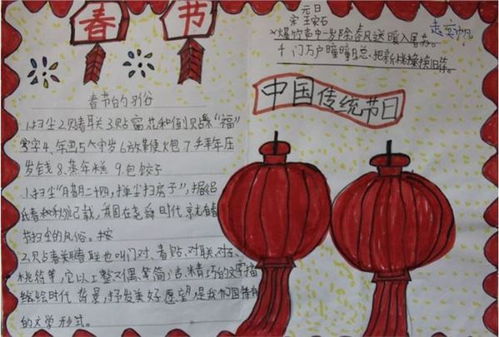 春节
元日
宋 王安石
爆竹声中一岁除春风送暖入屠苏
千门万户曈曈日总把新桃换旧符
中国传统节日
春节的习俗
1.扫尘2.贝占春联3.贴窗花和倒贝占"福"
字4.年画5.守岁6.放鞭炮7.拜年压
岁钱8.蒸年糕9.包饺子
1.扫尘"腊月二十四,掸尘扫房子",据
记载,我国在尧舜时代就有春
节扫尘的风俗。按
2.贝占春联春联也叫门对、春贴、对联、对子、
桃符等,它以工整对偶、简洁、精巧的文字描
绘时代背景,抒发美好愿望,是我国特有
的文学形式。